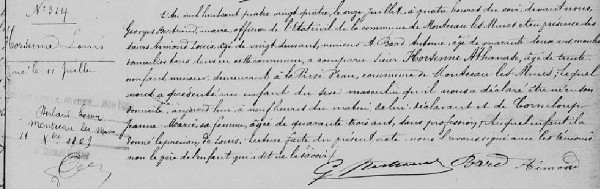 N° 324
Horsenne Louis
né le 11 juillet
L'An mil huit cent quatre vingt quatre, le onze juillet, à quatre heures du soir, devant nous,
Georges Bertrand maire, officier de l'État civil de la commune de Montceau les Mines en présence des
sieurs Aimond Louis, âgé de vingt deux ans, et Bard Antoine, âgé de quarante deux ans
domiciliés tous deux en cette commune, a comparu sieur Horsenne Athanase, âgé de trente
neuf ans mineur, demeurant à commune de Montceau les Mines; lequel
nous a présenté un enfant du sexe masculin qu'il nous a déclaré être né en son
domicile, aujourd'hui à neuf heures du matin de lui déclarant et de
Jeanne Marie sa femme, âgée de quarante trois ans, sans profession, auquel enfant il a
donné le prénom de Louis. Lecture faite du présent acte nous l'avons signé avec les témoins
non le père de l'enfant qui a dit ne le savoir.
Bard Aimond